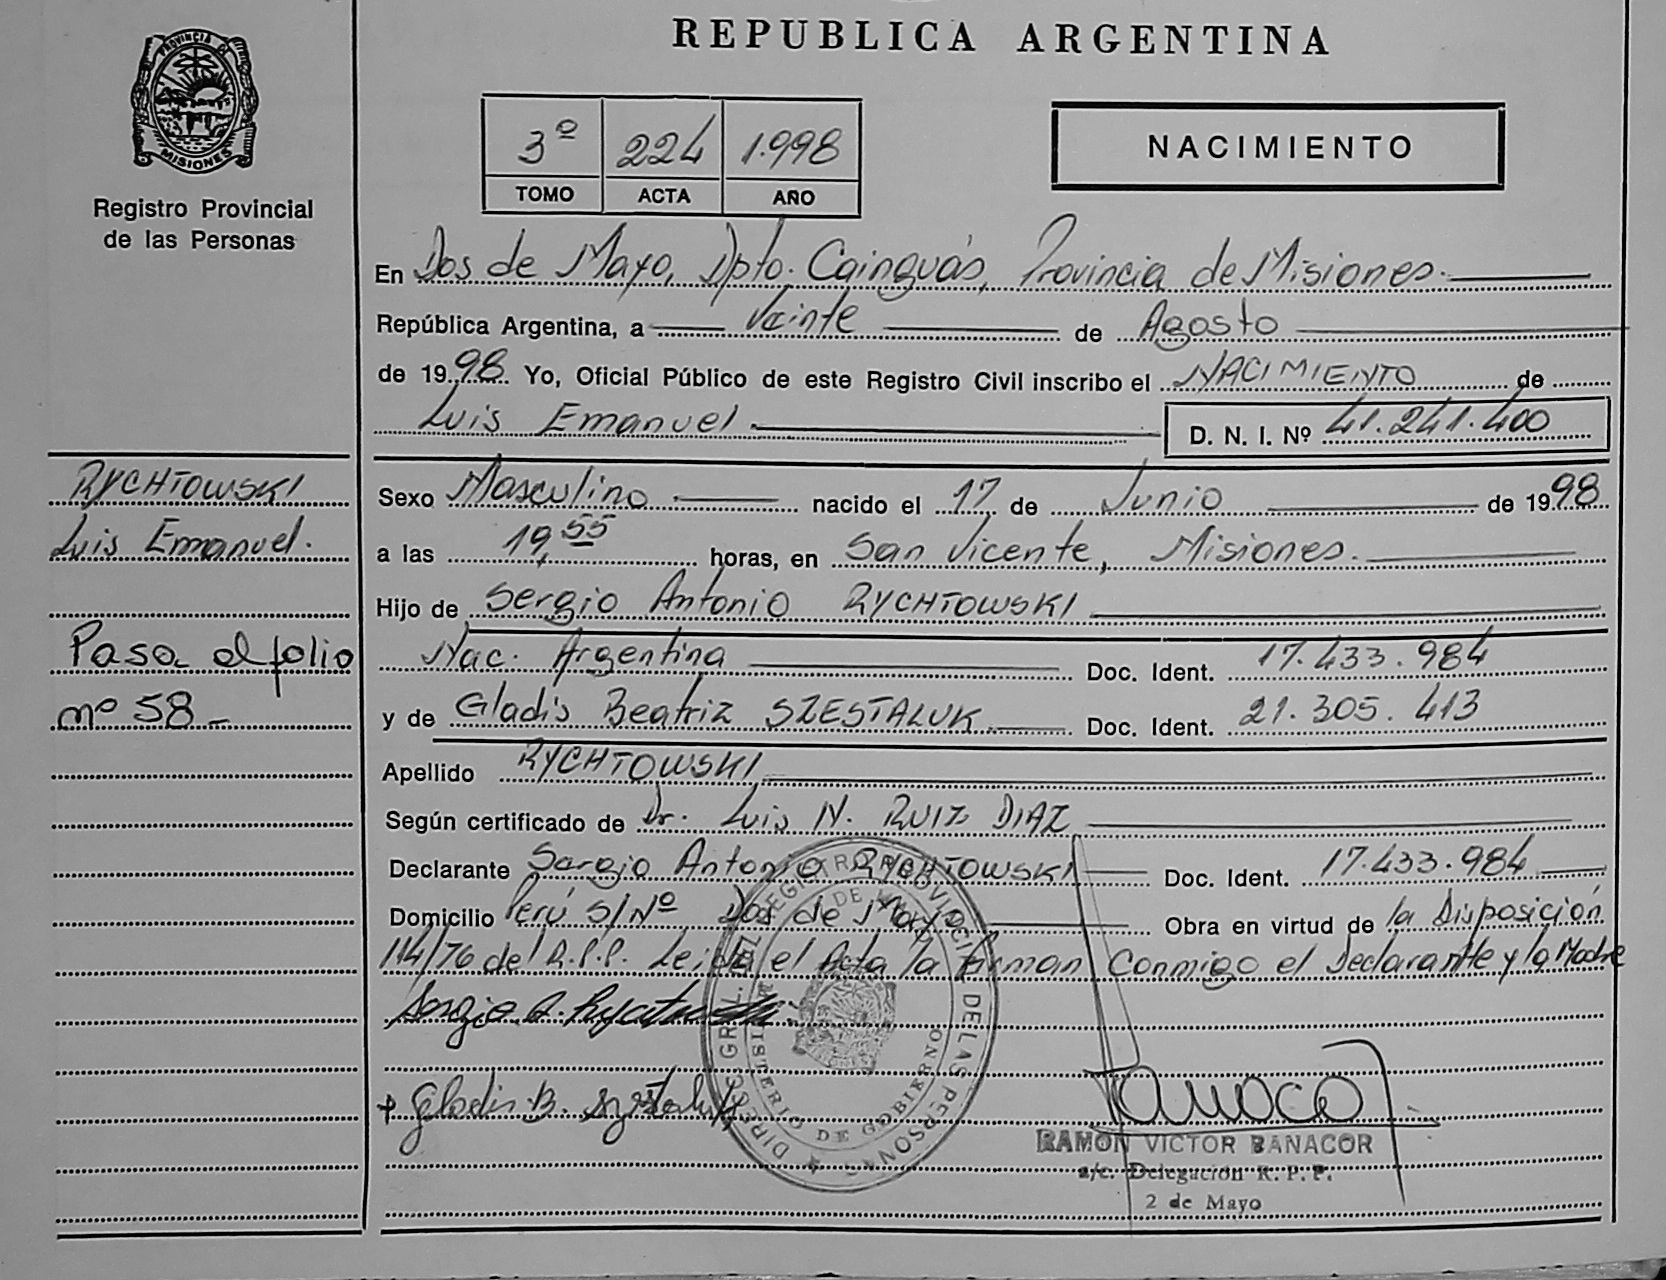 REPUBLICA ARGENTINA
PROVINCIA DE
MISIONES
Registro Provincial
de las Personas
3º 224 1.998
TOMO ACTA AÑO
NACIMIENTO
En Dos de Mayo, Dpto. Cainguás, Provincia de Misiones.
República Argentina, a Veinte de Agosto
de 1998 Yo, Oficial Público de este Registro Civil inscribo el NACIMIENTO de
Luis Emanuel D. N. I. Nº 41.241.400
RYCHTOWSKI
Luis Emanuel.
Pasa al folio
nº 58-
Sexo Masculino nacido el 17 de Junio de 1998
a las 19,55 horas, en San Vicente, Misiones.
Hijo de Sergio Antonio RYCHTOWSKI
Nac. Argentina Doc. Ident. 17.433.984
y de Gladis Beatriz SZESTALUK Doc. Ident. 21.305.413
Apellido RYCHTOWSKI
Según certificado de Dr. Luis N. RUIZ DIAZ
Declarante Sergio Antonio RYCHTOWSKI Doc. Ident. 17.433.984
Domicilio Perú S/Nº Dos de Mayo Obra en virtud de la Disposición
114/76 del R.P.P. Leida el Acta la firman conmigo el Declarante y la Madre
Sergio A.
Gladis B.
DIRECC. GRAL. DEL REGISTRO PROVINCIAL DE LAS PERSONAS
MINISTERIO DE GOBIERNO
RAMON VICTOR BANACOR
a/c. Delegación R. P. P.
2 de Mayo